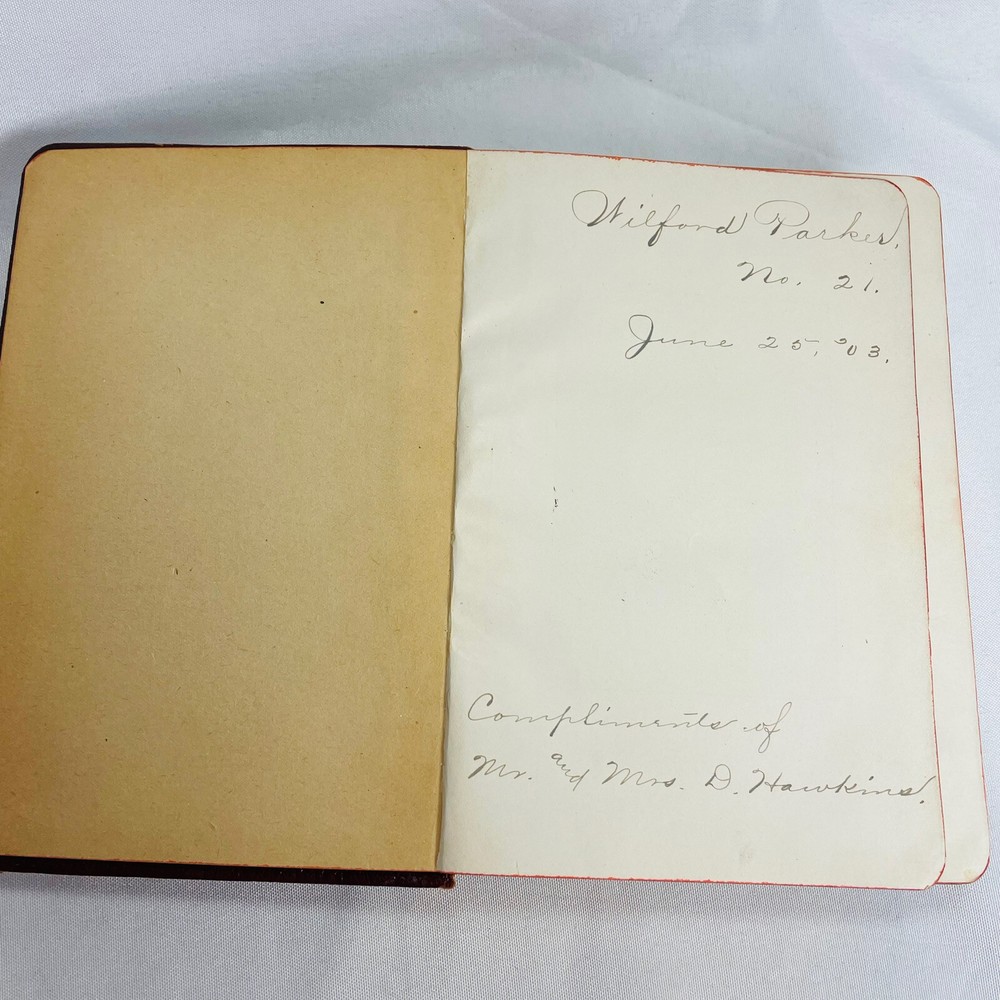 Wilford Parker.
No. 21.
June 25, '03.
Compliments of
Mr. and Mrs. D. Hawkins.